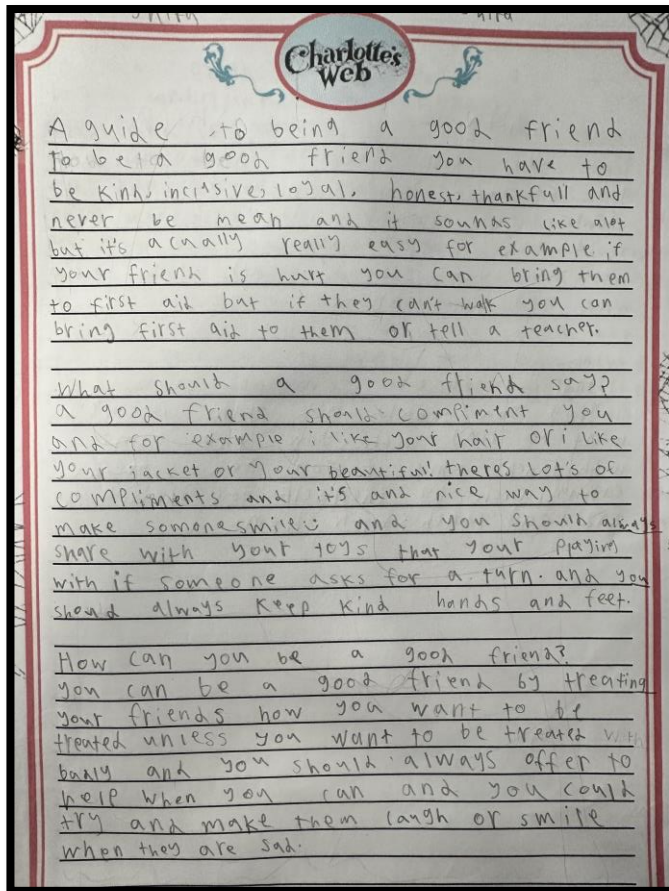 Charlotte's
Web
A guide to being a good friend
To be a good friend you have to
be kind, incisive, loyal, honest, thankfull and
never be mean and it sounds like alot
but it's acually really easy for example if
your friend is hurt you can bring them
to first aid but if they can't walk you can
bring first aid to them or tell a teacher.
What should a good friend say?
a good friend should compliment you
and for example i like your hair or i like
your jacket or your beautiful! theres lot's of
compliments and it's and nice way to
make somone smile and you should always
share with your toys that your playing
with if someone asks for a turn. and you
shoud always keep kind hands and feet.
How can you be a good friend?
you can be a good friend by treating
your friends how you want to be
treated unless you want to be treated with
badly and you should always offer to
help when you can and you could
try and make them laugh or smile
when they are sad.